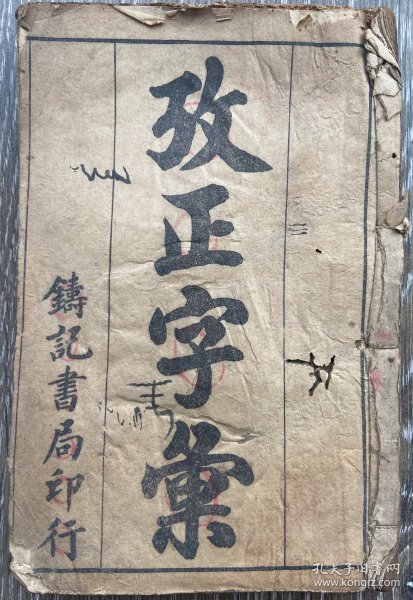 攷正字彙
鑄記書局印行
孔夫子旧书网
book.kongfz.com